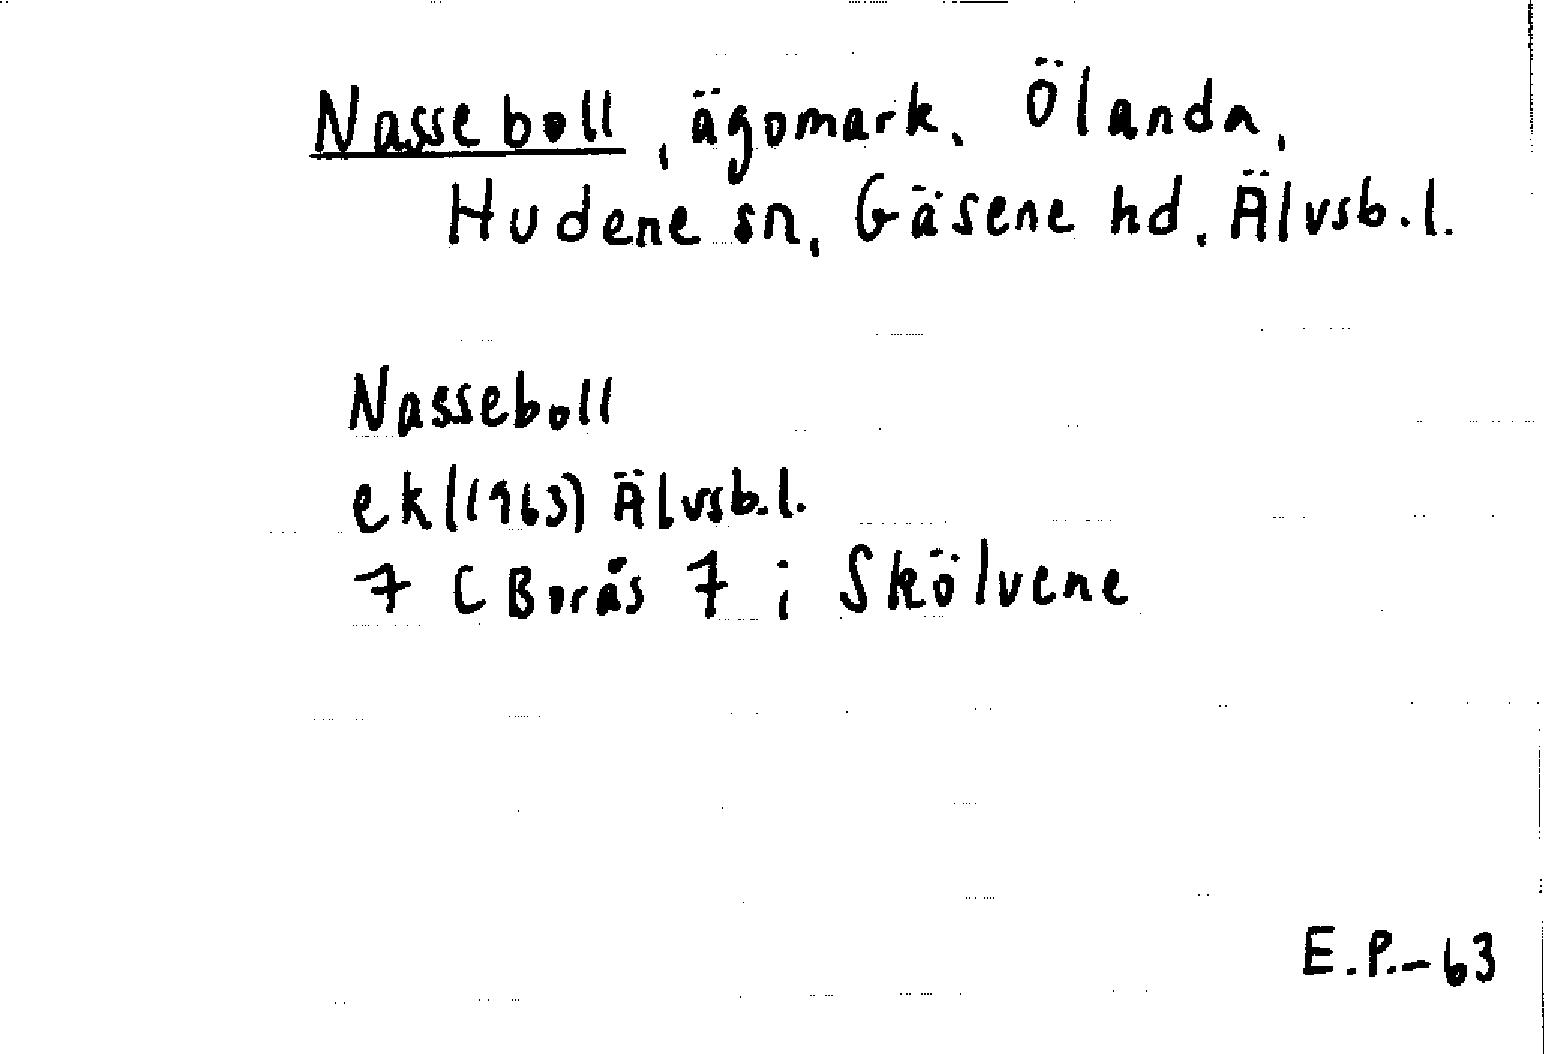 Nasseboll, ägomark, Ölanda,
Hudene sn, Gäsene hd, Älvsb.l.
Nasseboll
ek (1963) Älvsb.l.
7 C Borås 7 i Skölvene
E.P.-63